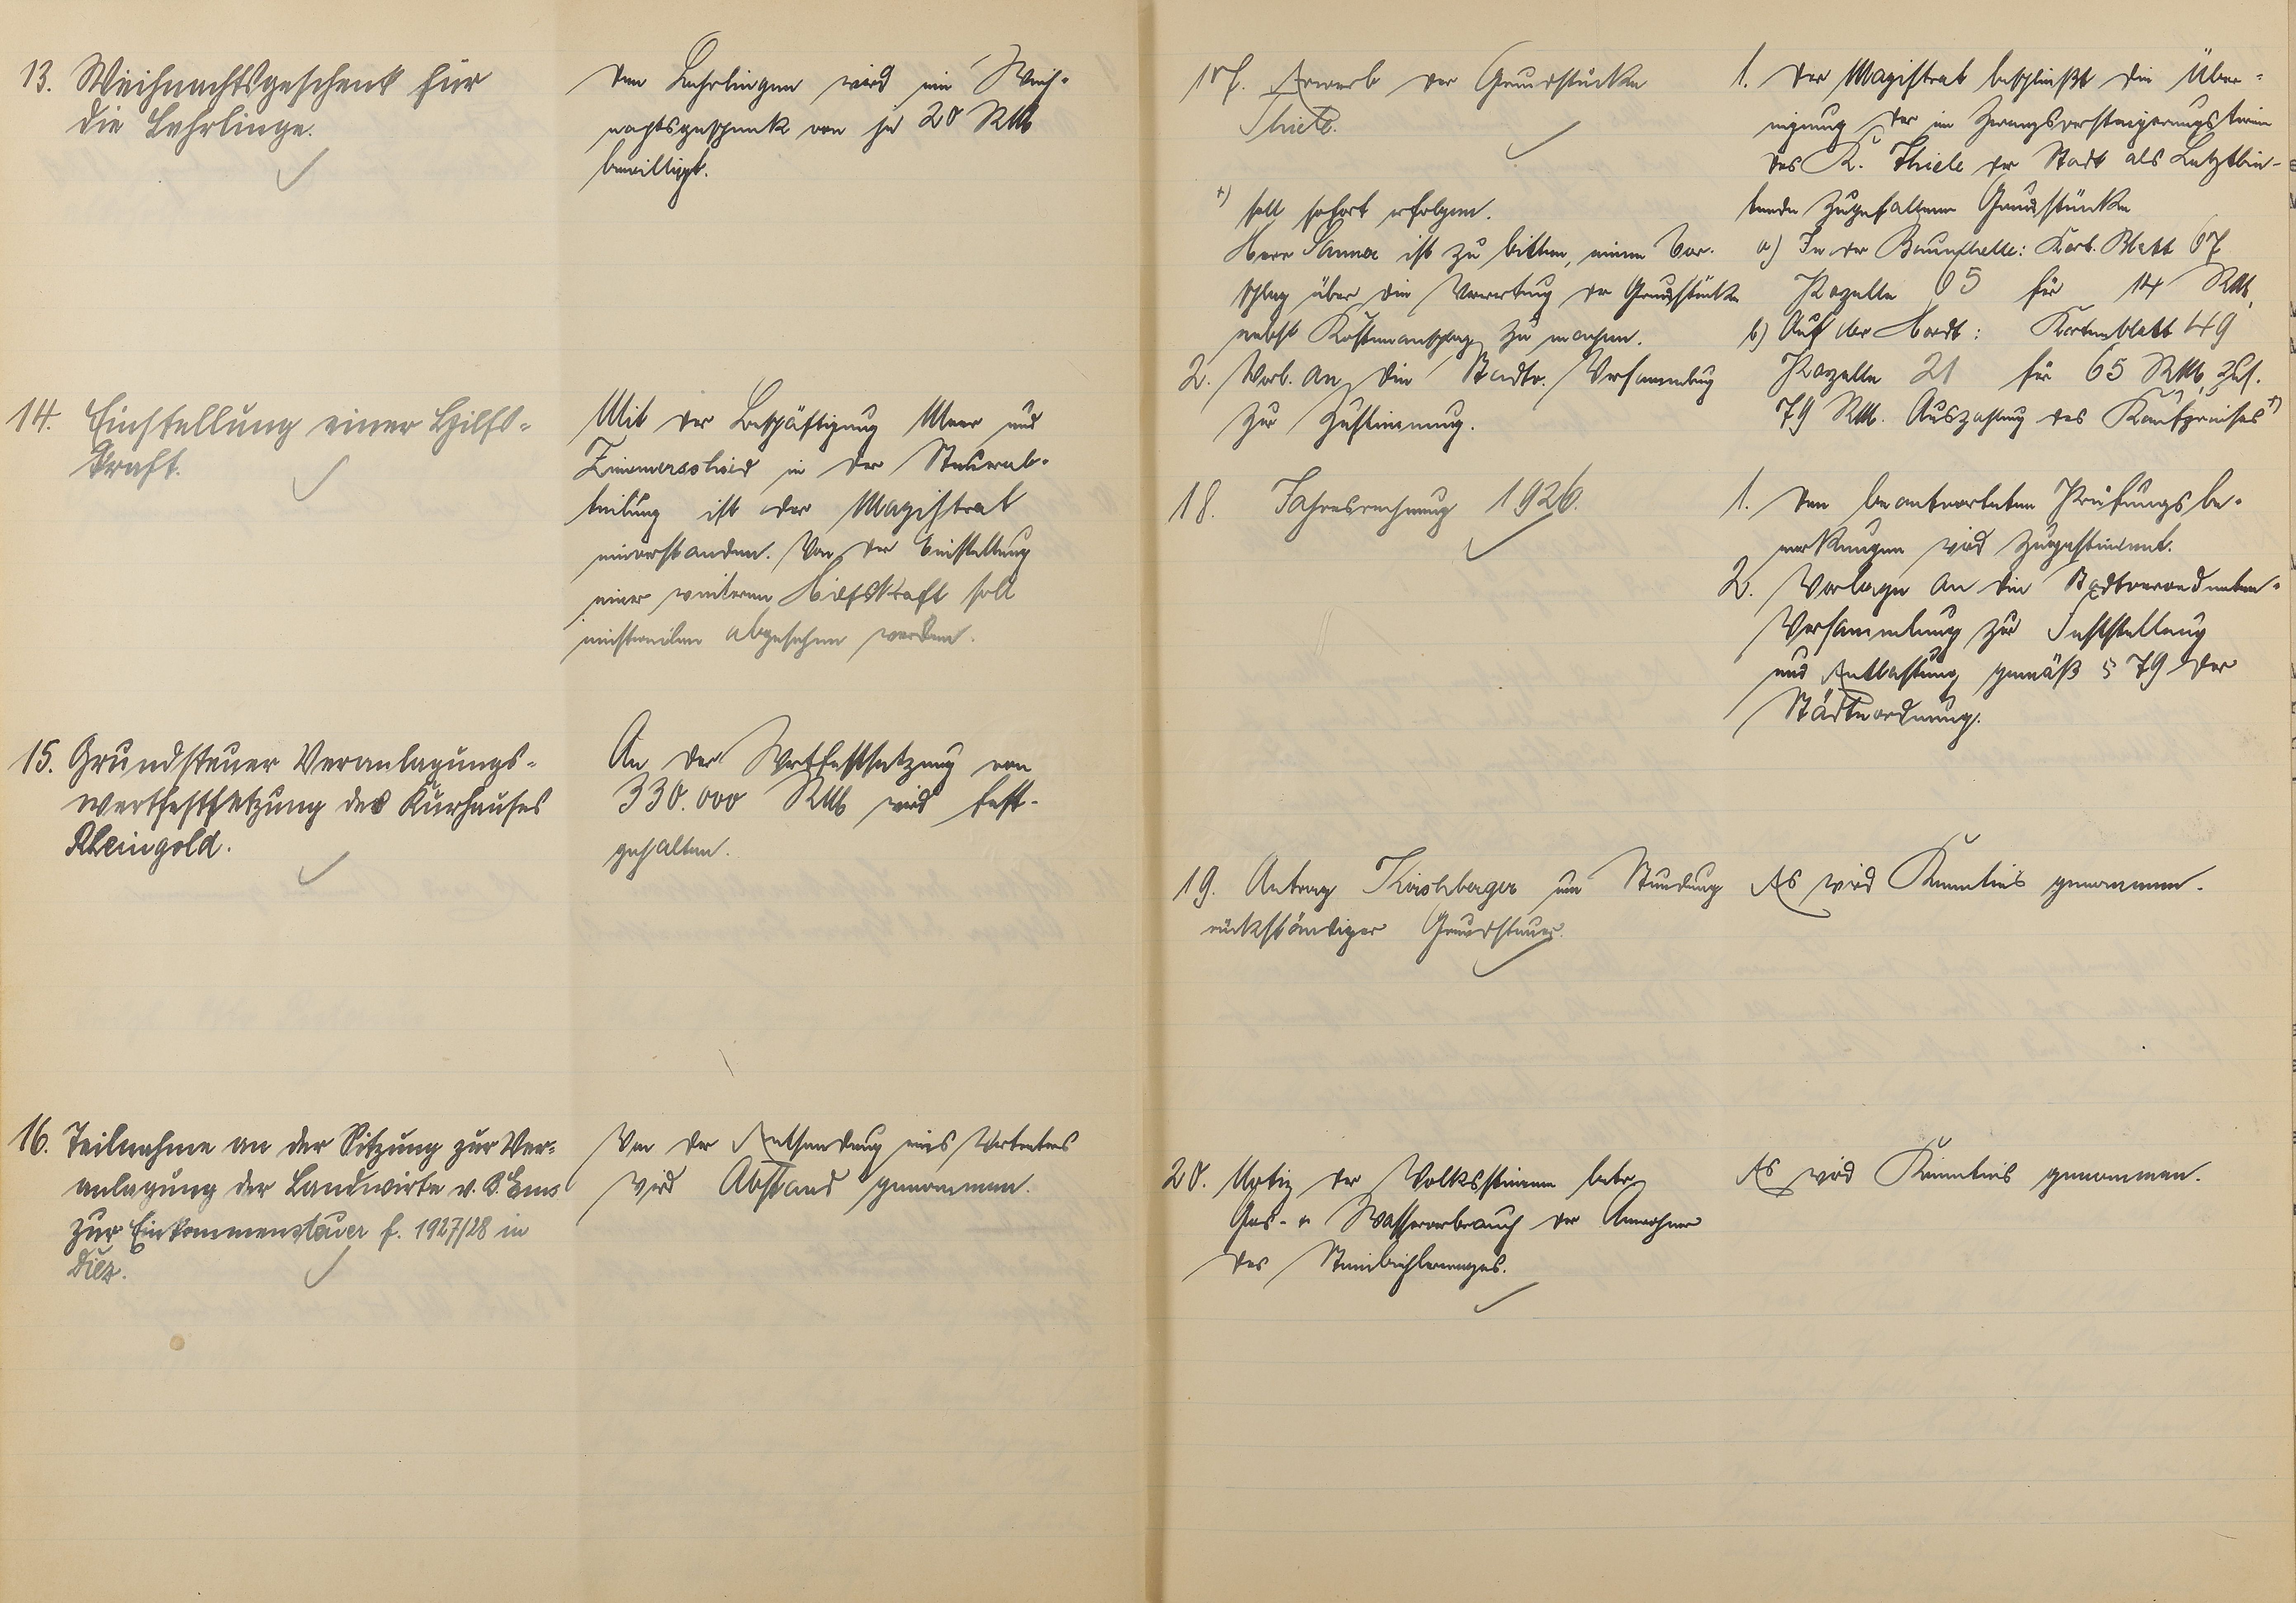 13. Weihnachtsgeschenk für
die Lehrlinge.
Den Lehrlingen wird ein Weih-
nachtsgeschenk von je 20 RM
bewilligt.
14. Einstellung einer Hilfs-
kraft.
Mit der Beschäftigung Meer und
Zimmerschied in der Steuerab-
teilung ist der Magistrat
einverstanden. Von der Einstellung
einer weiteren Hilfskraft soll
einstweilen abgesehen werden.
15. Grundsteuer Veranlagungs-
wertfestsetzung des Kurhauses
Rheingold.
An der Wertfestsetzung von
330.000 RM wird fest-
gehalten.
16. Teilnahme an der Sitzung zur Ver-
anlagung der Landwirte v. B. Ems
zur Einkommensteuer f. 1927/28 in
Diez.
Von der Entsendung eines Vertreters
wird Abstand genommen.
17. Erwerb der Grundstücke
Thiele.
1. Der Magistrat beschließt die Über-
eignung der im Zwangsversteigerungstermin
des K. Thiele der Stadt als Letztbie-
tende zugefallenen Grundstücke
a) In der Braunshelle: Kart. Blatt 67
Parzelle 65 für 14 RM,
b) Auf der Hardt: Kartenblatt 49
Parzelle 21 für 65 RM, zus.
79 RM. Auszahlung des Kaufpreises +)
+) soll sofort erfolgen.
Herr ist zu bitten, einen Vor-
schlag über die Verwertung der Grundstücke
nebst Kostenanschlag zu machen.
2. Vorl. an die Stadtv. Versammlung
zur Zustimmung.
18. Jahresrechnung 1926.
1. Den beantworteten Prüfungsbe-
merkungen wird zugestimmt.
2. Vorlage an die Stadtverordneten-
Versammlung zur Feststellung
und Entlastung gemäß § 79 der
Städteordnung.
19. Antrag Kirchberger um Stundung
rückständiger Grundsteuer.
Es wird Kenntnis genommen.
20. Notiz der Volksstimme betr.
Gas- u. Wasserverbrauch der Anwohner
des
Es wird Kenntnis genommen.